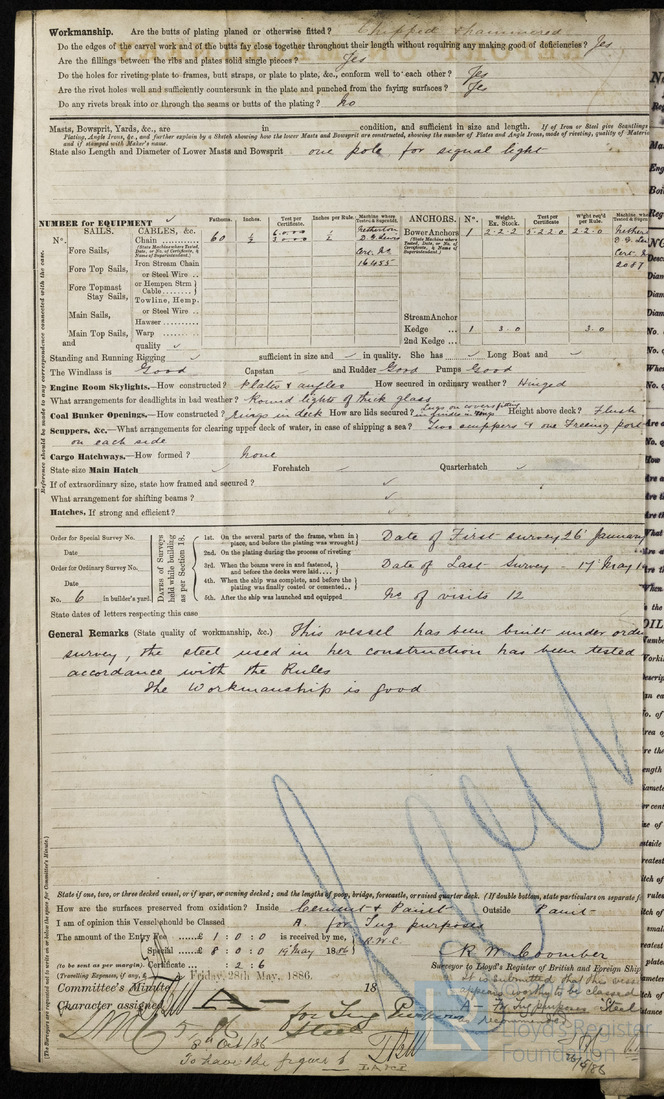 Workmanship. Are the butts of plating planed or otherwise fitted? Chipped & hammered
Do the edges of the carvel work and of the butts fay close together throughout their length without requiring any making good of deficiencies? Yes
Are the fillings between the ribs and plates solid single pieces? Yes
Do the holes for riveting plate to frames, butt straps, or plate to plate, &c., conform well to each other? Yes
Are the rivet holes well and sufficiently countersunk in the plate and punched from the faying surfaces? Yes
Do any rivets break into or through the seams or butts of the plating? No
Masts, Bowsprit, Yards, &c., are in condition, and sufficient in size and length. If of Iron or Steel give Scantlings
Plating, Angle Irons, &c., and further explain by a Sketch showing how the lower Masts and Bowsprit are constructed, showing the number of Plates and Angle Irons, mode of riveting, quality of Materia
and if stamped with Maker's name.
State also Length and Diameter of Lower Masts and Bowsprit one pole for signal light
NUMBER for EQUIPMENT Fathoms. Inches. Test per Certificate. Inches per Rule. Machine where Tested & Suprntdt. ANCHORS. No. Weight. Ex. Stock. Test per Certificate Wght req'd per Rule. Machine wh
No. SAILS. CABLES, &c.
Chain 60 Netherton Bower Anchors 1 2-2-2 5-2-2-0 2-2-0 Nether
Fore Sails, Iron Stream Chain 16455 2087
Fore Top Sails, or Steel Wire
Fore Topmast Stay Sails, or Hempen Strm Cable
Towline, Hemp.
Main Sails, or Steel Wire Stream Anchor
Hawser
Main Top Sails, Warp Kedge 1 3.0 3.0
and quality 2nd Kedge
Standing and Running Rigging sufficient in size and in quality. She has Long Boat and
The Windlass is Good Capstan and Rudder Good Pumps Good
Engine Room Skylights.—How constructed? Plates & angles How secured in ordinary weather? Hinged
What arrangements for deadlights in bad weather? Round lights of thick glass
Coal Bunker Openings.—How constructed? rings in deck How are lids secured? Height above deck? Flush
Scuppers, &c.—What arrangements for clearing upper deck of water, in case of shipping a sea? Two scuppers & one Freeing port
on each side
Cargo Hatchways.—How formed? none
State size Main Hatch Forehatch Quarterhatch
If of extraordinary size, state how framed and secured?
What arrangement for shifting beams?
Hatches, If strong and efficient?
Order for Special Survey No.
Date
Order for Ordinary Survey No.
Date
No. 6 in builder's yard.
DATES of Surveys held while building as per Section 18.
1st. On the several parts of the frame, when in place, and before the plating was wrought
2nd. On the plating during the process of riveting
3rd. When the beams were in and fastened, and before the decks were laid
4th. When the ship was complete, and before the plating was finally coated or cemented
5th. After the ship was launched and equipped
Date of First survey 26 January
Date of Last Survey - 17 May
No of visits 12
State dates of letters respecting this case
General Remarks (State quality of workmanship, &c.) This vessel has been built under
survey, the steel used in her construction has been tested
accordance with the Rules
The Workmanship is good
State if one, two, or three decked vessel, or if spar, or awning decked; and the lengths of poop, bridge, forecastle, or raised quarter deck. (If double bottom, state particulars on separate f
How are the surfaces preserved from oxidation? Inside Cement & Paint Outside Paint
I am of opinion this Vessel should be Classed A. for Tug purposes
The amount of the Entry Fee £ 1 : 0 : 0 is received by me, R.W.C.
Special £ 8 : 0 : 0 19 May 1886
(to be sent as per margin.) Certificate : 2 : 6
(Travelling Expenses, if any, £
R W Coomber
Surveyor to Lloyd's Register of British and Foreign Ship
Committee's Minute Friday, 28th May, 1886. 18
Character assigned A— for Tug Purposes
Steel
It is submitted that this vess
appears worthy to be classed
A— For Tug purposes "Steel"
Oct/86
To have the figure 1
Lloyd's Register
Foundation
Reference should be made to any correspondence connected with the case.
(The Surveyors are requested not to write on or below the space for Committee's Minute.)